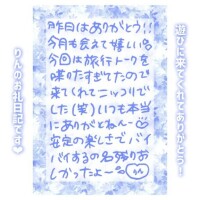 遊びに来てくれてありがとう！
昨日はありがとう!!
今月も会えて嬉しい名
今回は旅行トークを
喋りたすぎてたので
来てくれてニッコリで
した(笑)いつも本当
にありがとねんー
安定の楽しさでバイ
バイするの名残りお
しかったよー
りんのお礼日記です♥